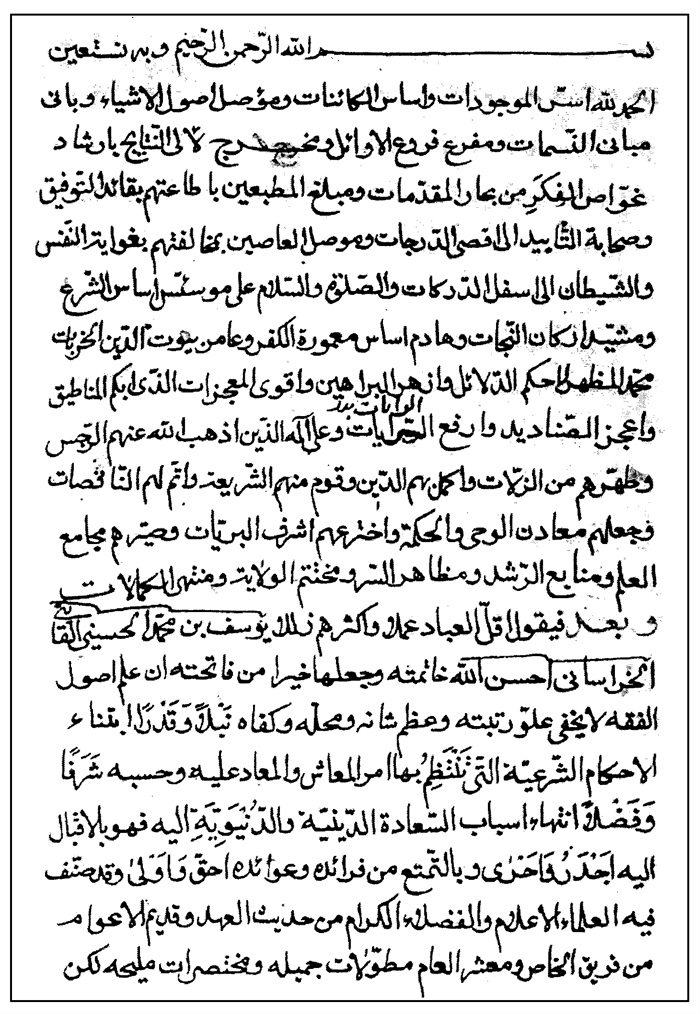 بسم الله الرّحمن الرّحيم وبه نستعين
الحمد لله اسّ الموجودات واساس الكائنات ومؤصل اصول الاشياء وبانى
مبانى النسمات ومفرع فروع الاوائل ومخرج لآلى النتايج بارشاد
غوّاص الفِكَرِ من بحار المقدّمات ومبلغ المطيعين باطاعتهم بقائد التوفيق
وصحابة التأييد الى اقصى الدّرجات وموصل العاصين بمخالفتهم بغواية النّفس
والشّيطان الى اسفل الدّركات والصّلوة والسّلام على موسّس اساس الشرع
ومشيّد اركان النّجات وهادم اساس معمورة الكفر وعامر بيوت الدّين الخربات
محمّد المظهر لاحكم الدّلائل وازهر البراهين واقوى المعجزات الذى ابكم المناطيق
واعجز الصّناديد وارفع الرايات وعلى آله الّذين اذهب الله عنهم الرّجس
وطهّرهم من الزلّات واكمل بهم الدّين وقوم منهم الشّريعة واتّم لهم النّاقصات
وجعلهم معادن الوحى والحكمة واخترعهم اشرف البريّات وصيّرهم مجامع
العلم ومنابع الرّشد ومظاهر السّر ومختتم الولاية ومنتهى الكمالات
وبعد فيقول اقلّ العباد عملا واكثرهم زللا يوسف بن محمّد الحسينى القاينى
الخراسانى احسن الله خاتمته وجعلها خيرا من فاتحته ان علم اصول
الفقه لا يخفى علوّ رتبته وعظم شانه ومحلّه وكفاه نَبْلًا وَقَدْرًا ابتناء
الاحكام الشّرعيّة الّتى تَنْتَظِمُ بها امر المعاش والمعاد عليه وحسبه شَرَفًا
وَفَضْلًا انتهاء اسباب السّعادة الدّينيّة والدُّنْيَوِيَّةِ اليه فهو بالاقبال
اليه اَجْدَرُ وَاَحْرٰى وبالتّمتع من فرائده وعوائده احقّ وَاَوْلىٰ وقد صنّف
فيه العلماء الاعلام والفضلاء الكرام من حديث العهد وقديم الاعوام
من فريق الخاص ومعشر العام مطوّلات جميله ومختصرات مليحه لكن